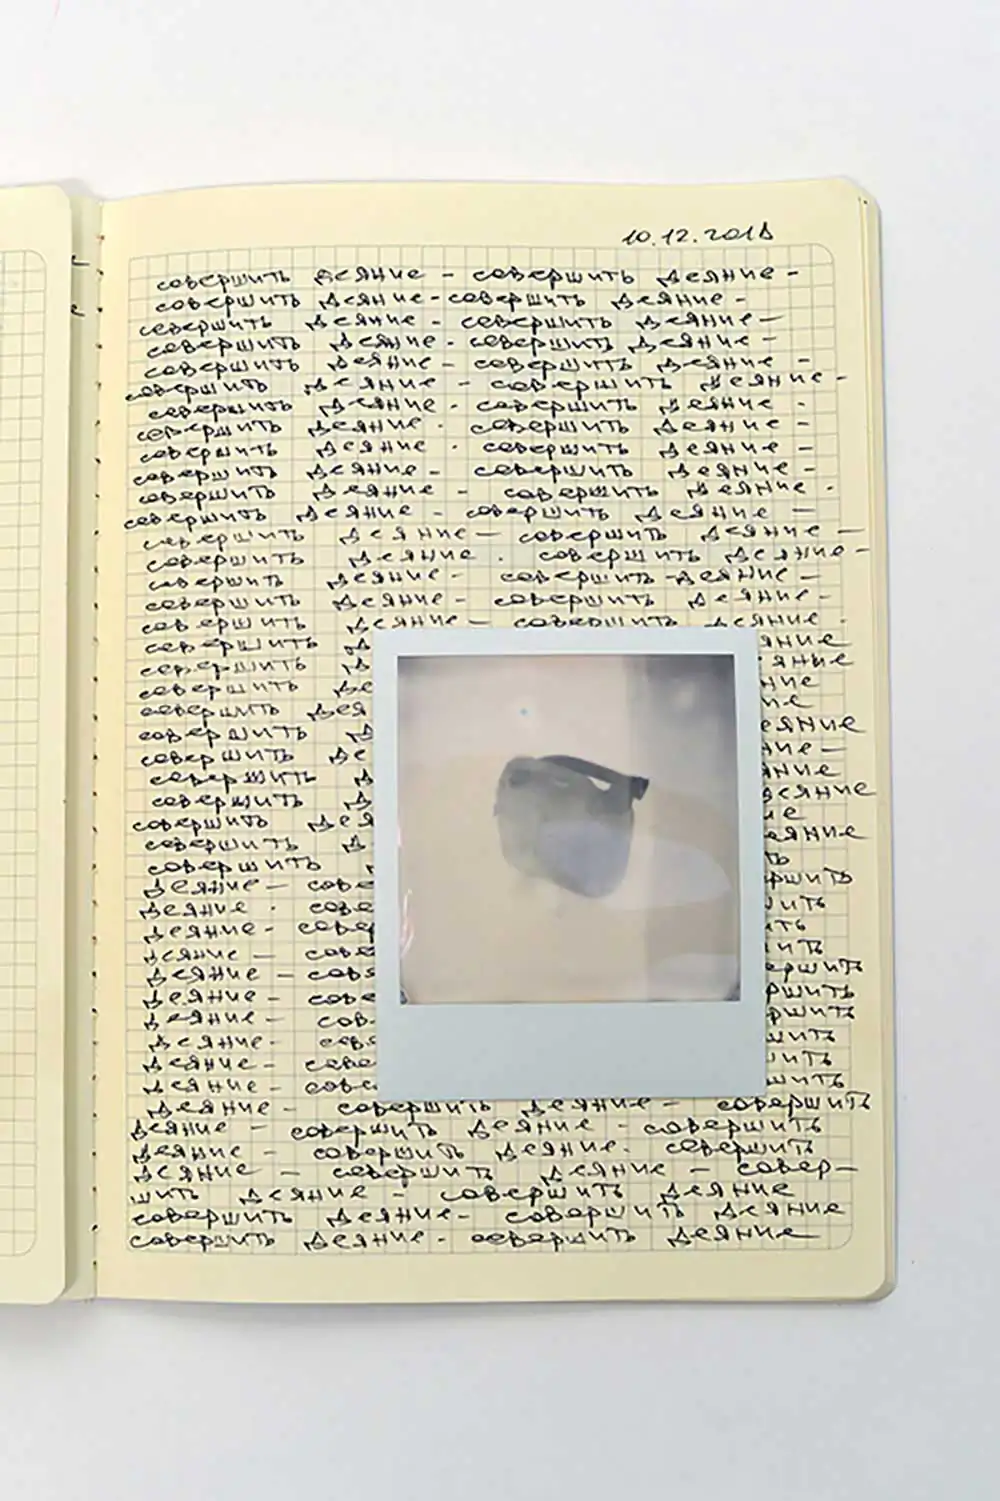 10.12.2018
совершить деяние - совершить деяние -
совершить деяние - совершить деяние -
совершить деяние - совершить деяние -
совершить деяние - совершить деяние -
совершить деяние - совершить деяние -
совершить деяние - совершить деяние -
совершить деяние - совершить деяние -
совершить деяние - совершить деяние -
совершить деяние - совершить деяние -
совершить деяние - совершить деяние -
совершить деяние - совершить деяние -
совершить деяние - совершить деяние -
совершить деяние - совершить деяние -
совершить деяние - совершить деяние -
совершить деяние - совершить - деяние -
совершить деяние - совершить деяние -
совершить деяние - совершить деяние -
совершить д яние
совершить д яние
совершить де яние
совершить дея ие
совершить д еяние
совершить де ние -
совершить д яние
совершить д деяние
совершить дея ие
совершить д деяние
совершить д ть
деяние - сове ршить
деяние - сове ить
деяние - сове ть
деяние - сове ить
деяние - сове ершить
деяние - сове ршить
деяние - сов ршить
деяние - сове шить
деяние - сове шить
деяние - сове шить
деяние - совершить деяние - совершить
деяние - совершить деяние - совершить
деяние - совершить деяние - совершить
деяние - совершить деяние - совер-
шить деяние - совершить деяние
совершить деяние - совершить деяние
совершить деяние - совершить деяние